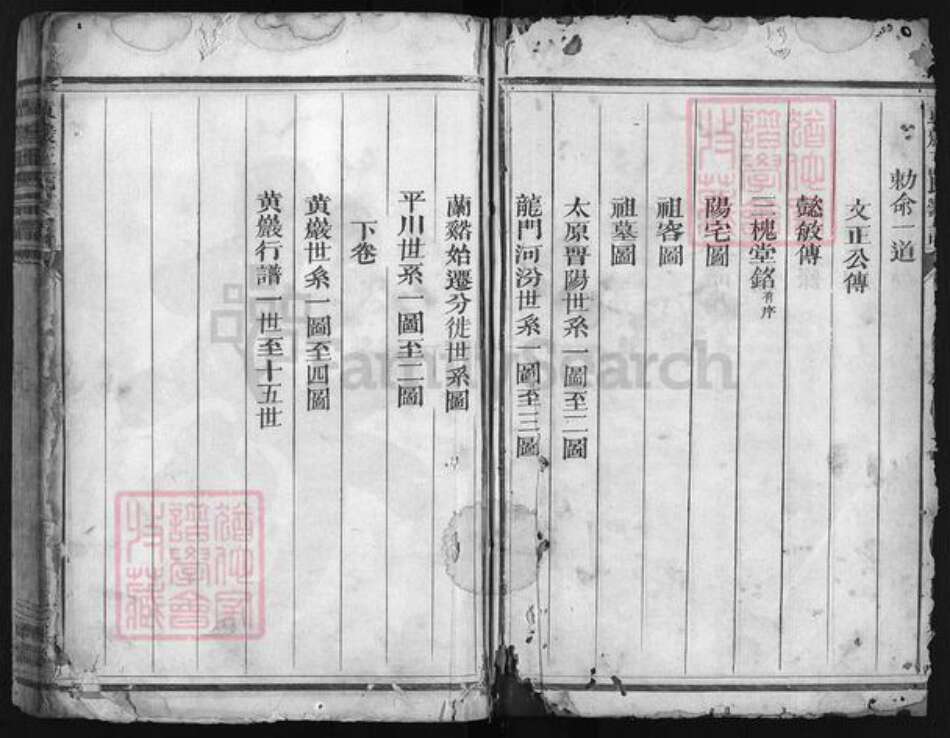 勅命一道
文正公傳
懿敏傳
三槐堂銘有序
陽宅圖
祖容圖
祖墓圖
太原晉陽世系一圖至二圖
龍門河汾世系一圖至三圖
蘭谿始遷分徙世系圖
平川世系一圖至二圖
下卷
黄巖世系一圖至四圖
黄巖行譜一世至十五世
FamilySearch